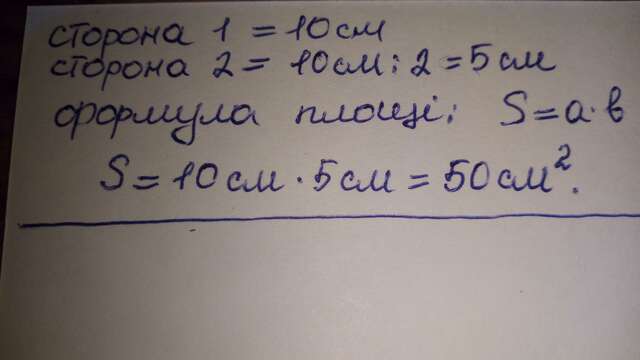 сторона 1 = 10 см
сторона 2 = 10 см : 2 = 5 см
формула площі: S = a · b
S = 10 см · 5 см = 50 см².